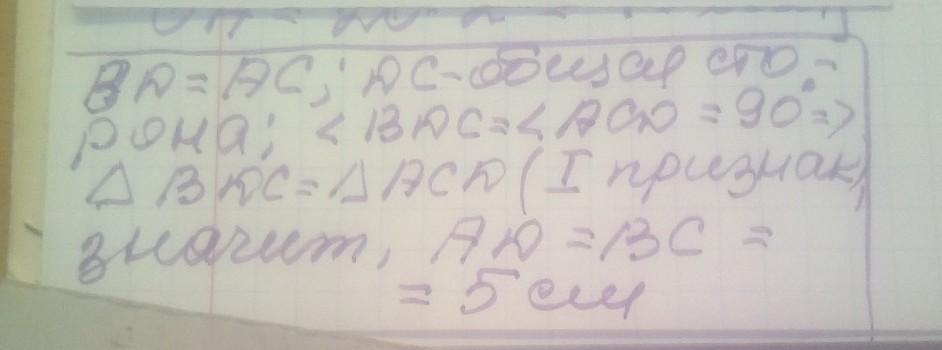 BD = AC; DC - общая сто-
рона; < BDC = < ACD = 90° =>
△ BDC = △ ACD (I признак),
значит, AD = BC =
= 5 см